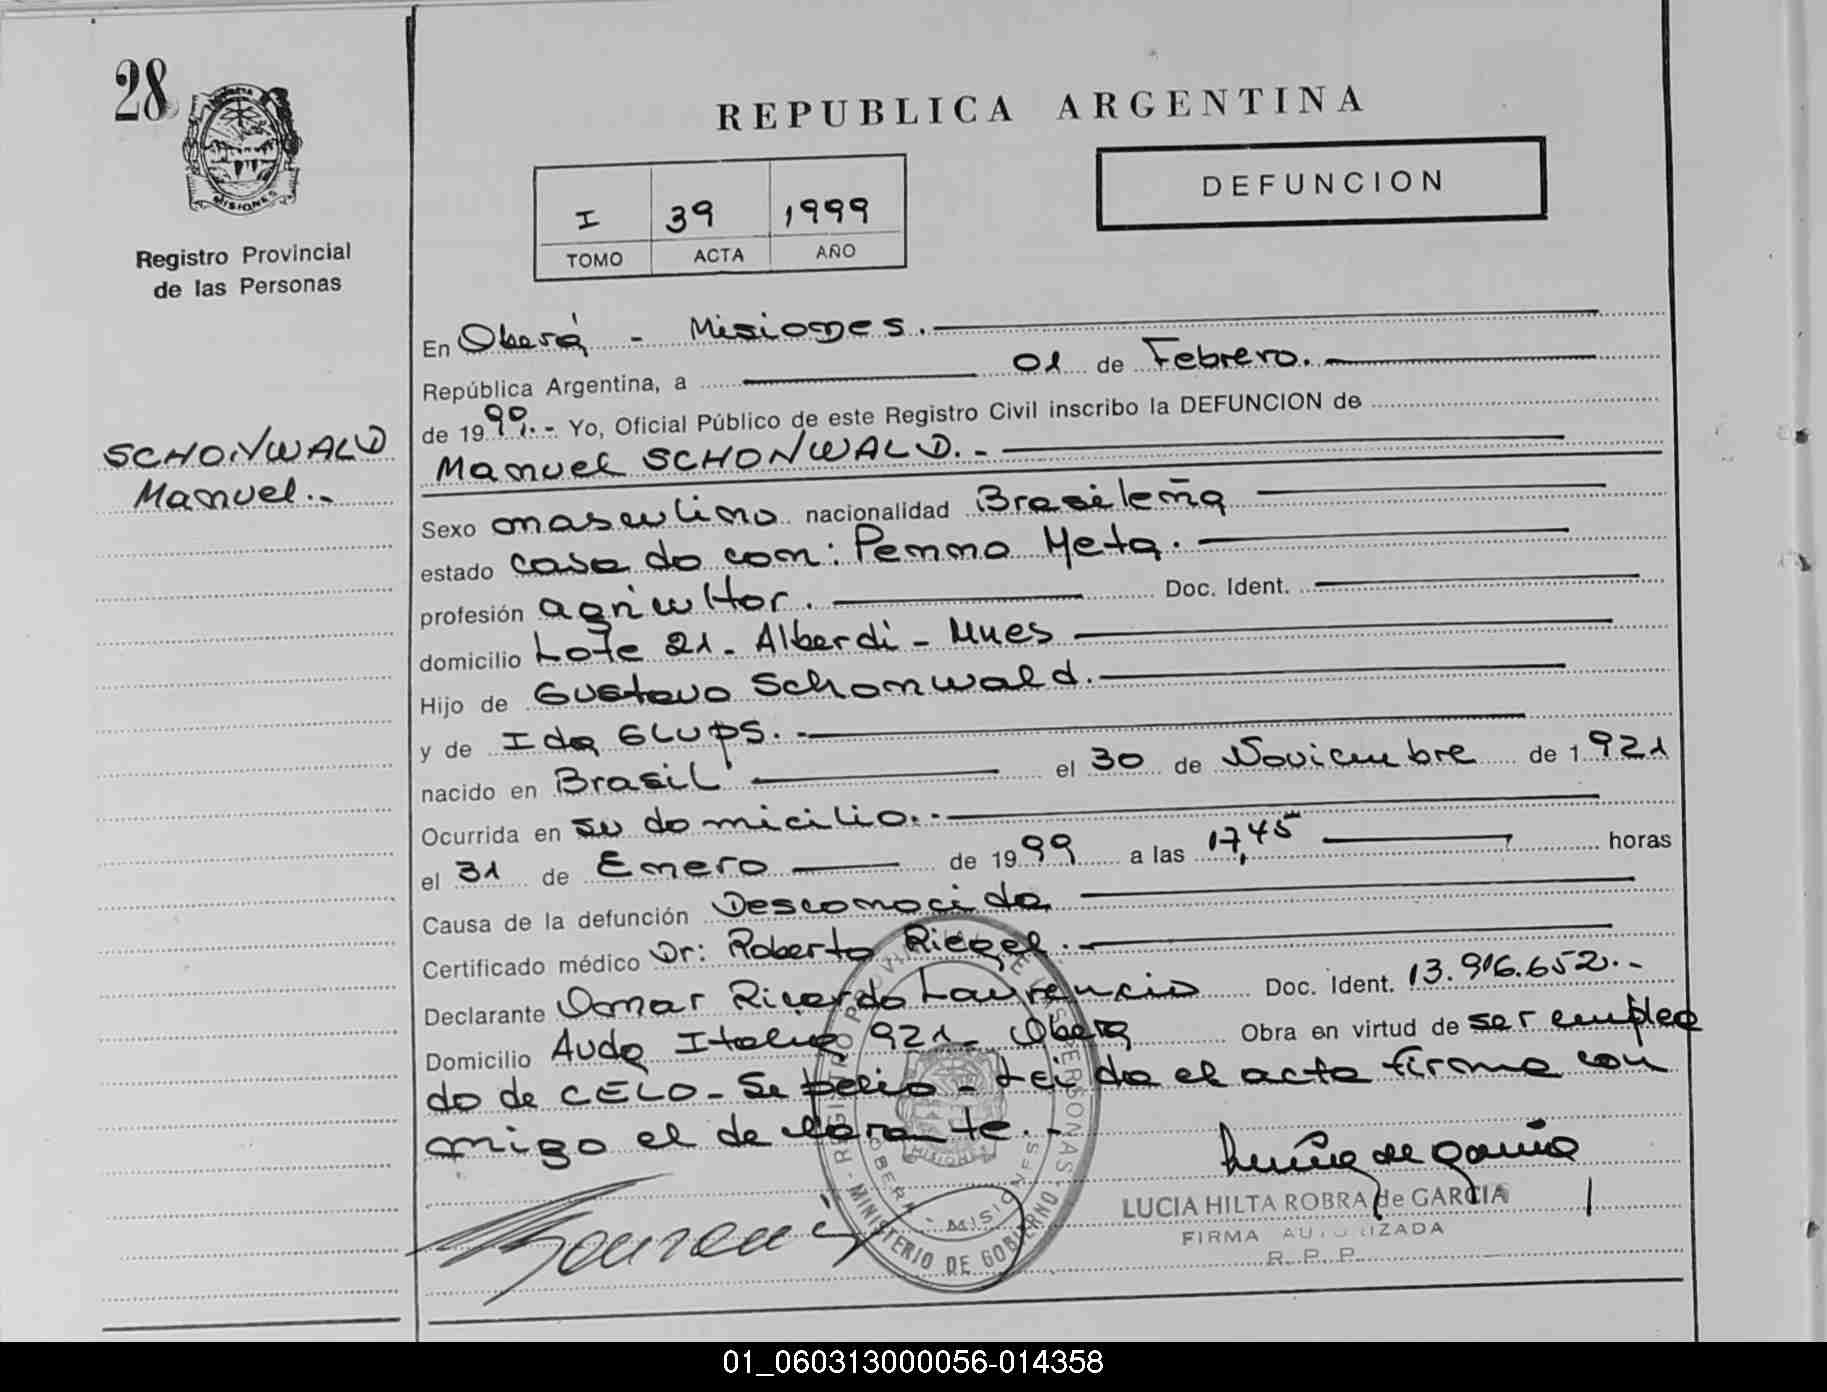 28
MISIONES
Registro Provincial
de las Personas
SCHONWALD
Manuel.-
REPUBLICA ARGENTINA
I 39 1999
TOMO ACTA AÑO
DEFUNCION
En Oberá - Misiones.
República Argentina, a 01 de Febrero.
de 1999.- Yo, Oficial Público de este Registro Civil inscribo la DEFUNCION de
Manuel SCHONWALD.-
Sexo masculino nacionalidad Brasileña
estado casado con: Penno Meta.
profesión agricultor. Doc. Ident.
domicilio Lote 21- Alberdi - Mnes
Hijo de Gustavo Schonwald.
y de Ida GLUPS.-
nacido en Brasil el 30 de Noviembre de 1921
Ocurrida en su domicilio.-
el 31 de Enero de 1999 a las 17,45 horas
Causa de la defunción Desconocida
Certificado médico Dr: Roberto Riegel.-
Declarante Omar Ricardo Laurencio Doc. Ident. 13.916.652.-
Domicilio Avda Italia 921- Obera Obra en virtud de ser emplea
do de CELO- Se pelio - Leida el acta firma con
migo el declarante.-
REGISTRO PROVINCIAL DE LAS PERSONAS
OBERA - MISIONES
MINISTERIO DE GOBIERNO
LUCIA HILTA ROBRA de GARCIA
FIRMA AUTORIZADA
R. P. P.
01_060313000056-014358